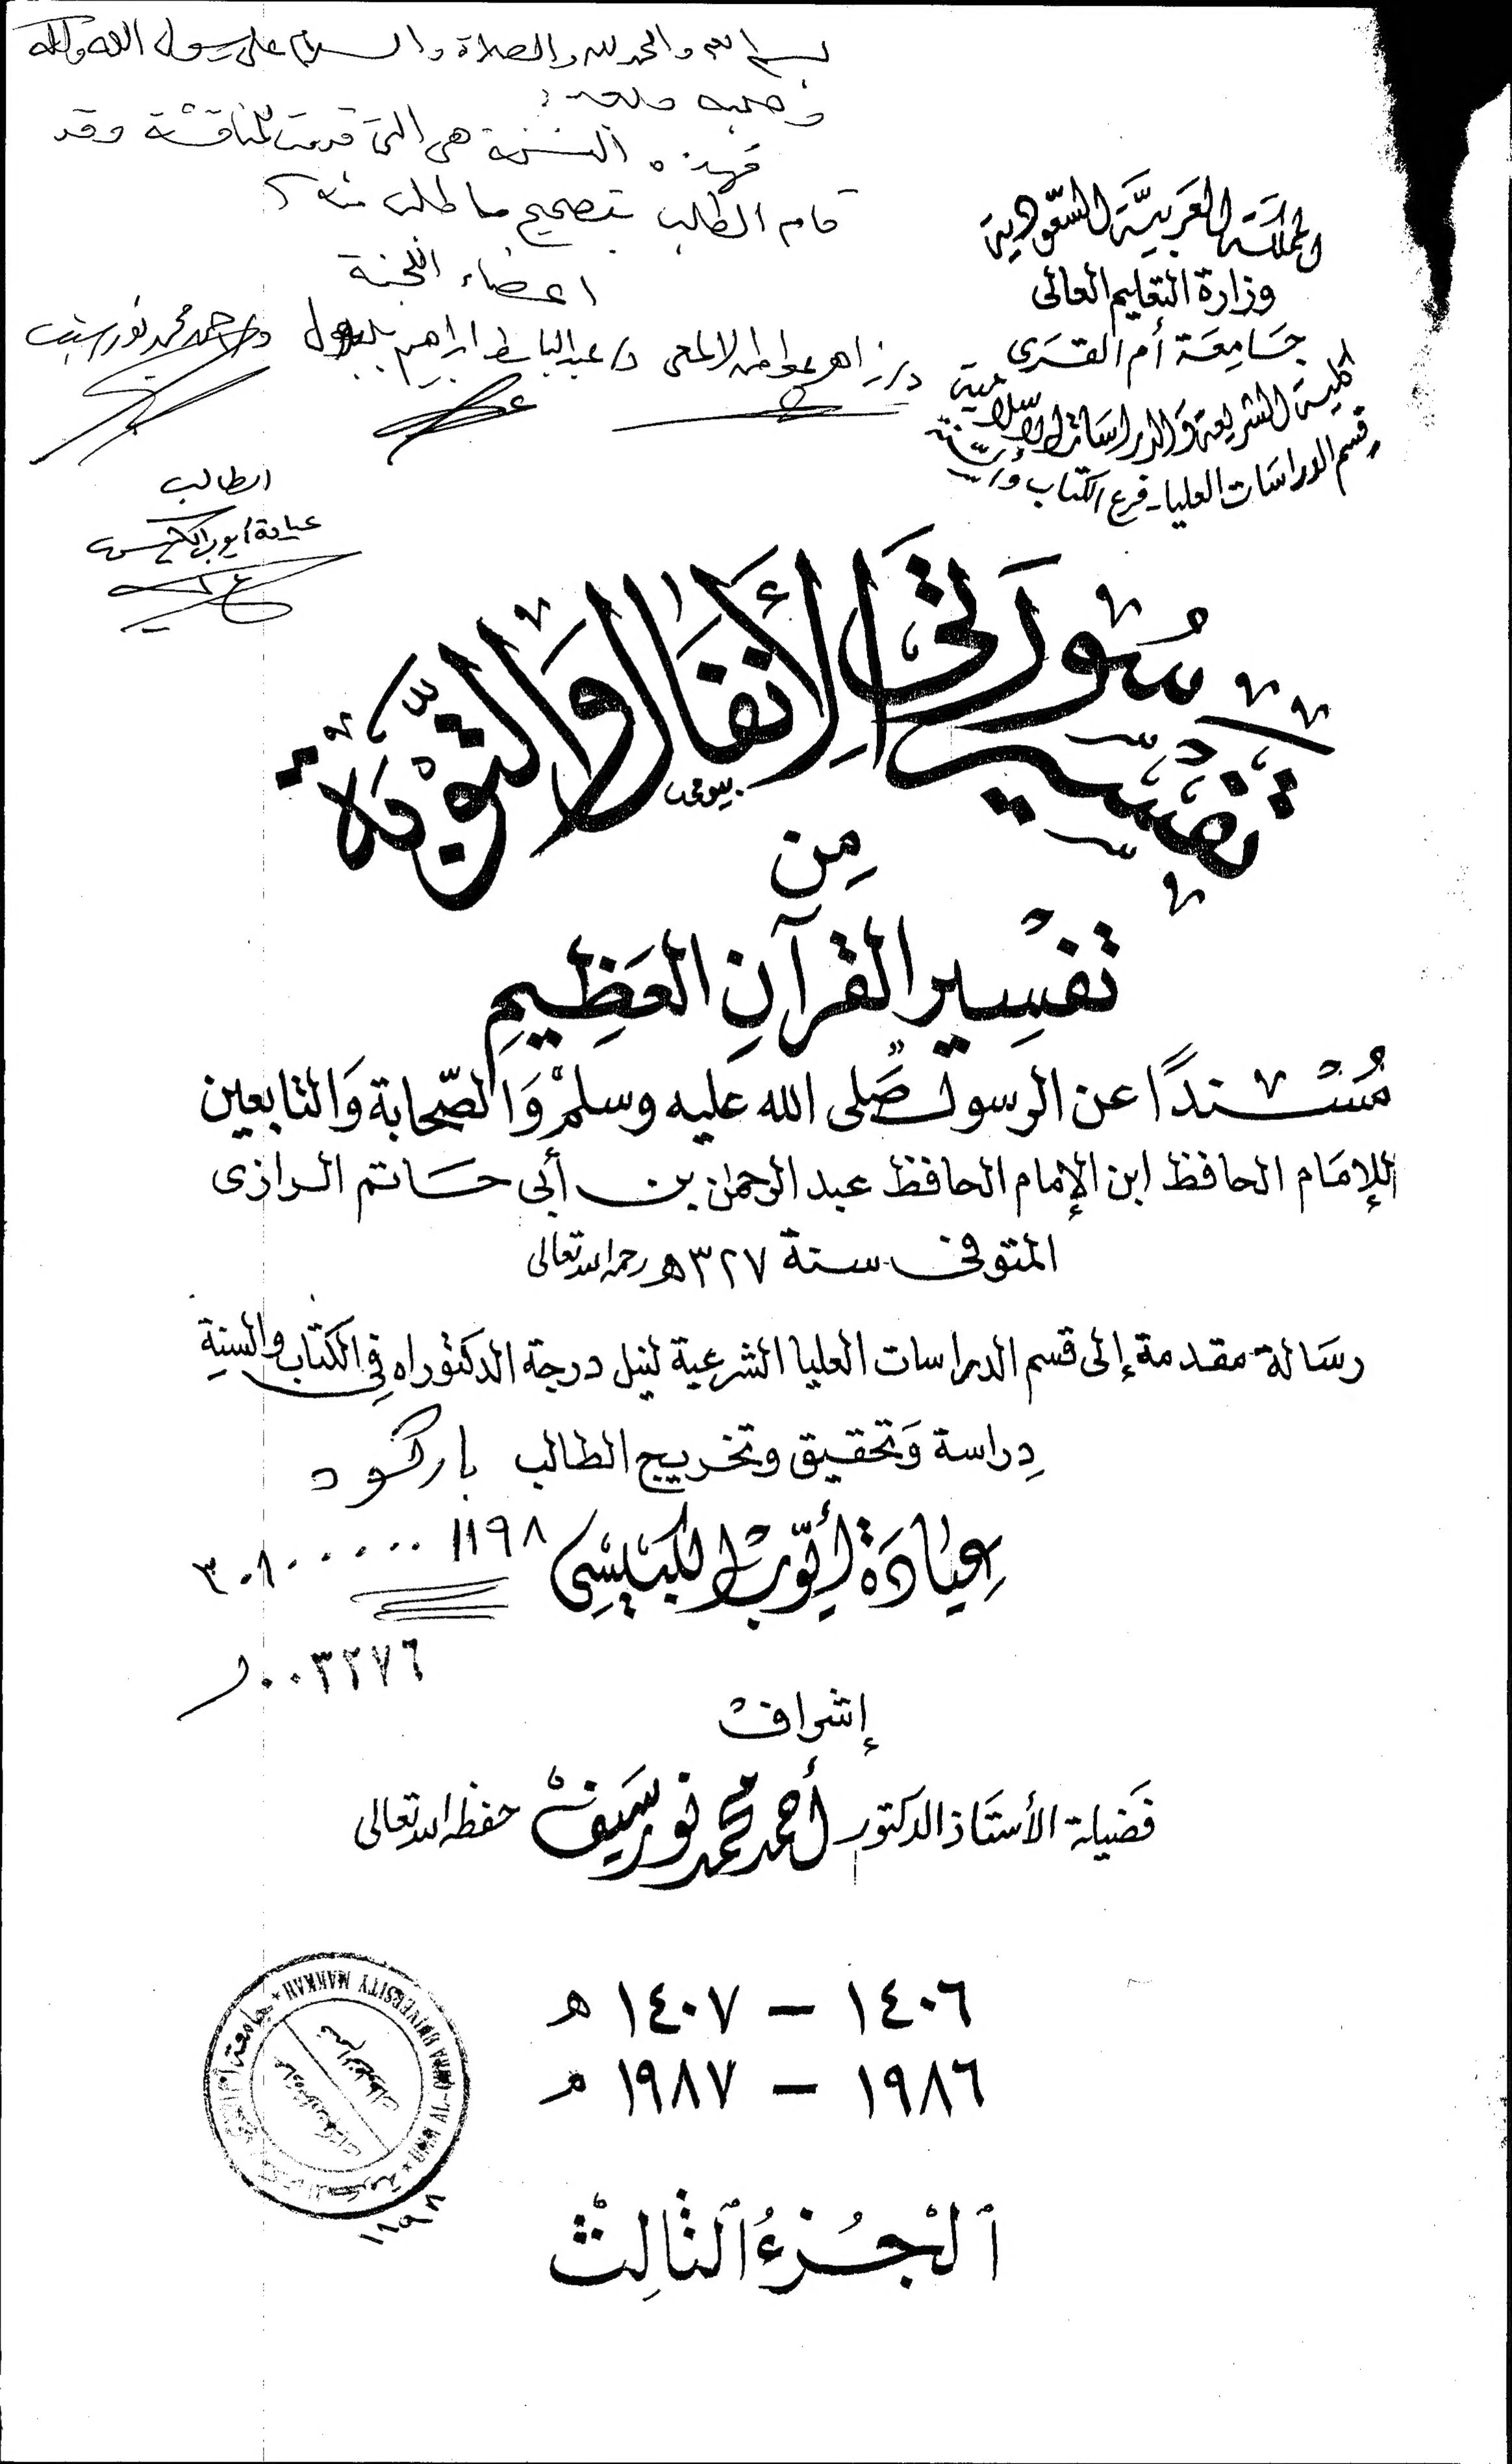 بسم الله والحمد لله والصلاة والسلام على رسول الله وآله
وصحبه وبعد:
فهذه النسخة هي التي قدمت للمناقشة وقد
قام الطالب بتصحيح ما طلب منه
أعضاء اللجنة
د. زاهر عواض الألمعي د/ عبد الباسط ابراهيم بلبول د/ احمد محمد نور سيف
الطالب
عيادة أيوب الكبيسي
المملكة العربية السعودية
وزارة التعليم العالى
جَامِعَة أم القُرَى
كلية الشريعة والدراسات الإسلامية
قسم الدراسات العليا - فرع الكتاب والسنة
تفسير سُورَتَي الأنفَال وَالتَّوبَة
بيومى
مِن
تفسِير القرآنِ العَظِيمِ
مُسْنَدًا عن الرسول صَلى الله عَليه وسلم وَالصّحابة وَالتابعين
للإمَام الحافظ ابن الإمام الحافظ عبد الرحمٰن بن أبى حَاتم الرازى
المتوفى سنة ٣٢٧ هـ رحمه الله تعالى
رسَالة مقدمة إلى قسم الدراسات العليا الشرعية لنيل درجة الدكتوراه فِي الكتاب والسنة
دِراسة وَتحقيق وتخريج الطالب
باركود
عِيَادَة أيّوب الكبَيْسِى
١١٩٨ ٣٠١٠٠٠٠٠
٠٠٣٢٧٦
إشراف
فَضيلة الأستَاذ الدكتور أحمد محمد نور سَيف حفظه الله تعالى
١٤٠٦ – ١٤٠٧ هـ
١٩٨٦ – ١٩٨٧ م
UMM AL-QURA UNIVERSITY MAKKAH
جامعة أم القرى
١١٩٨
ٱلْجُزءُ ٱلثَالِث